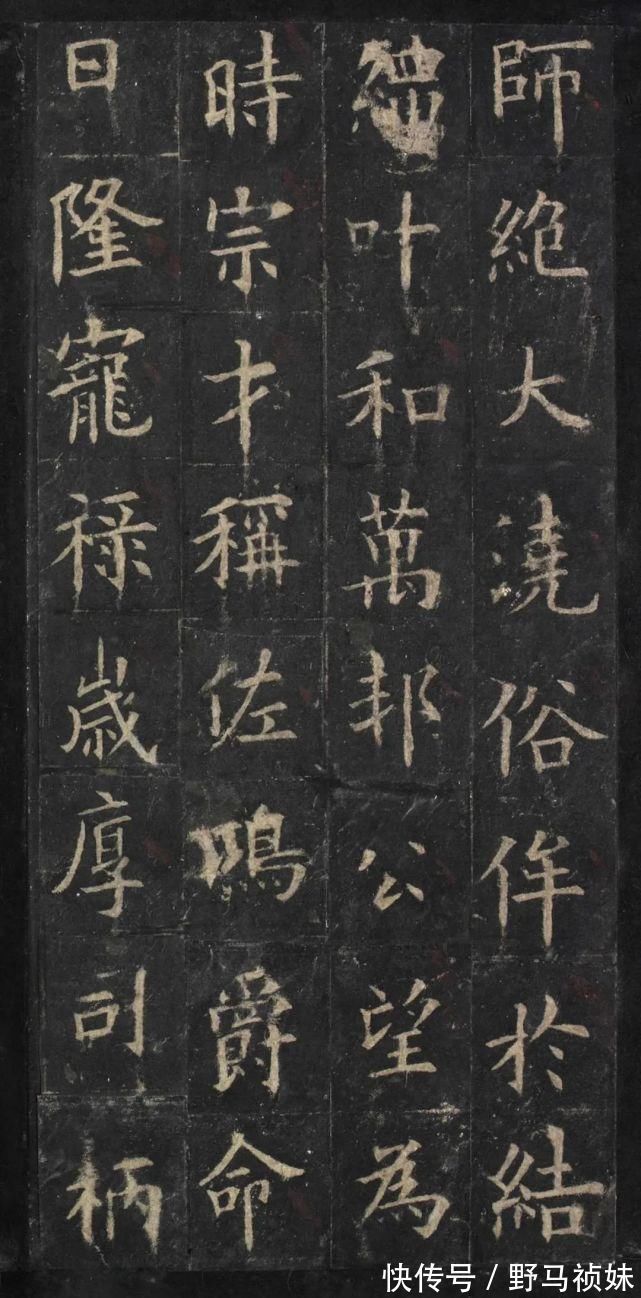 師絶大澆俗侔於結
繩叶和萬邦公望為
時宗才稱佐鳴爵命
日隆寵禄歳厚司柄
快传号 / 野马祯妹